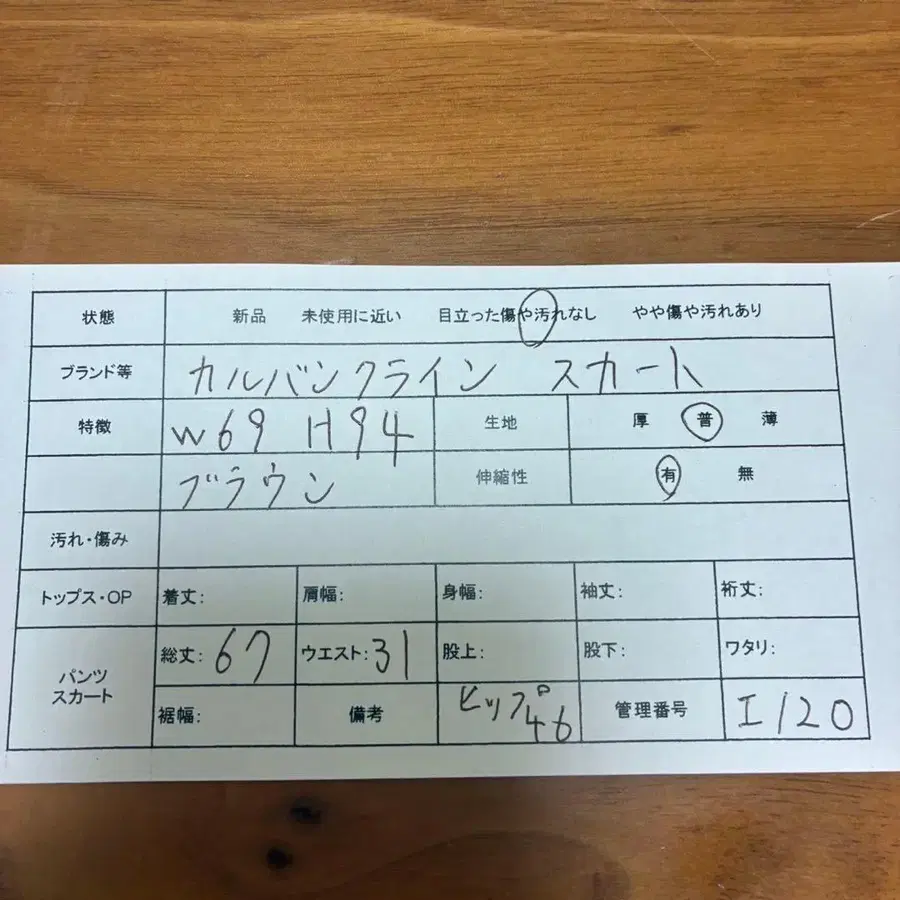 状態 新品 未使用に近い 目立った傷や汚れなし やや傷や汚れあり
ブランド等 カルバンクライン スカート
特徴 W69 H94 生地 厚 普 薄
ブラウン 伸縮性 有 無
汚れ・傷み
トップス・OP 着丈: 肩幅: 身幅: 袖丈: 裄丈:
パンツ スカート 総丈: 67 ウエスト: 31 股上: 股下: ワタリ:
裾幅: 備考 ヒップ46 管理番号 I120